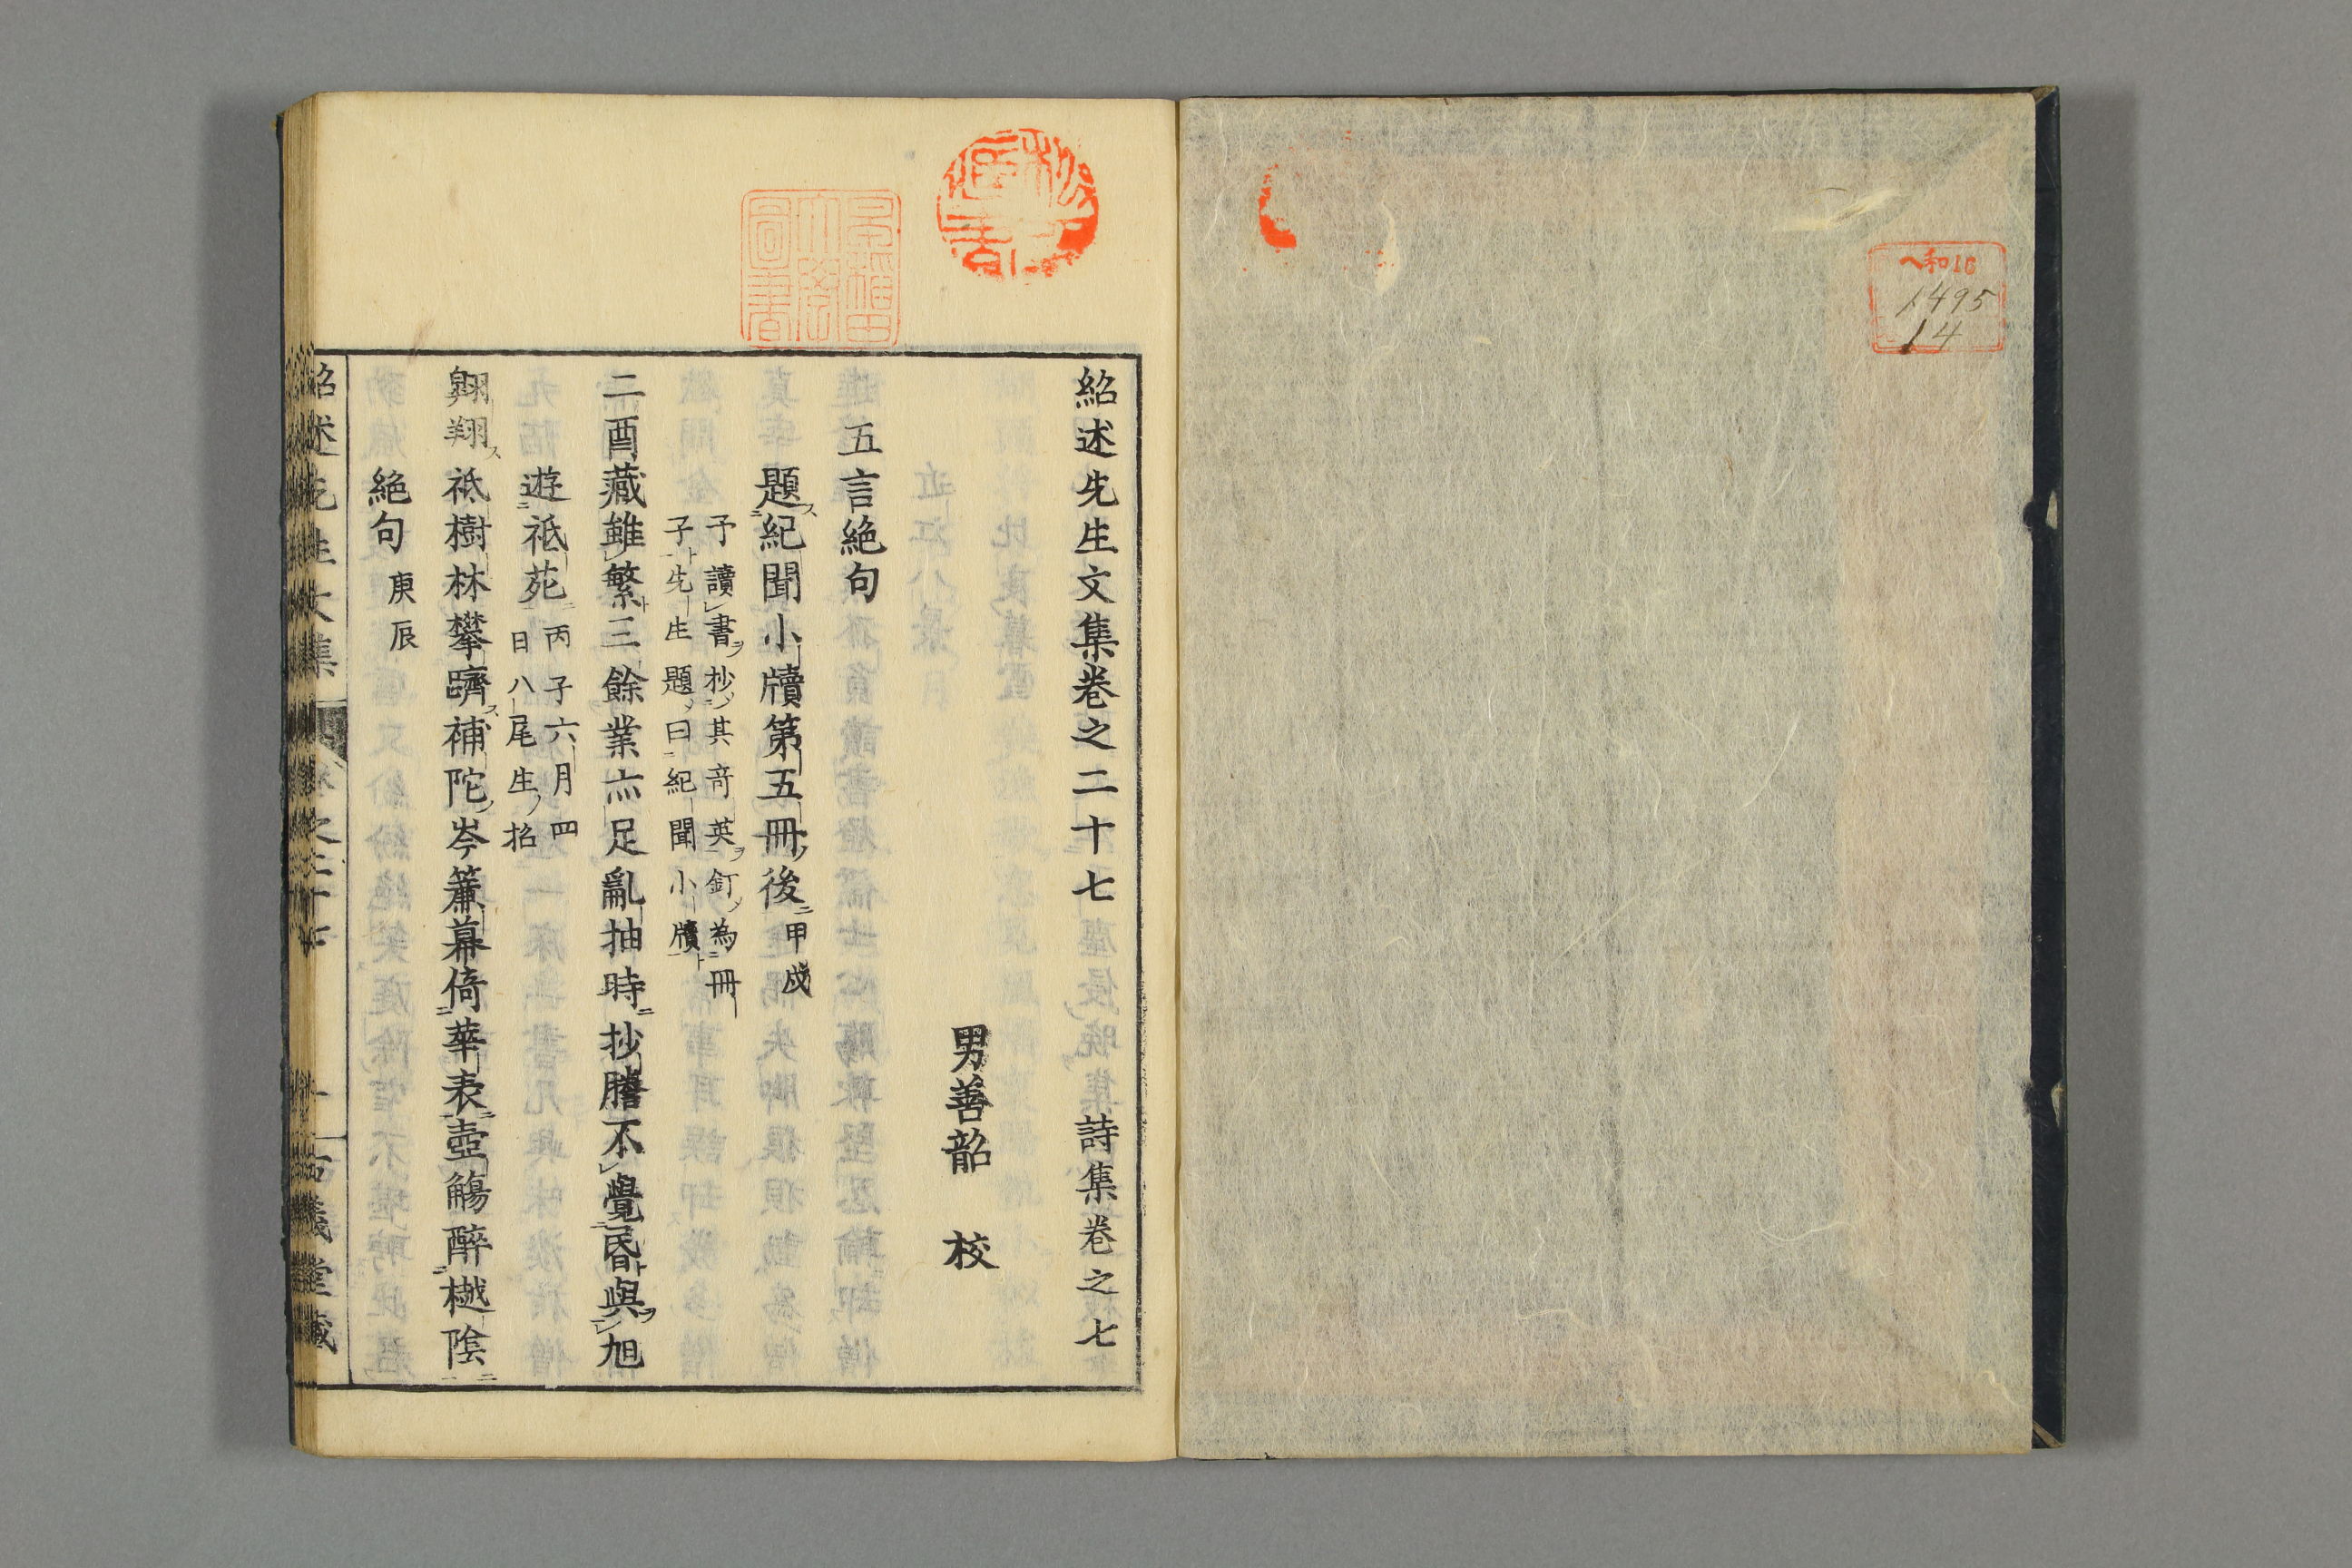 ヘ和16
1495
14
紹述先生文集巻之二十七 詩集巻之七
男善韶 校
五言絶句
題紀聞小牘第五冊後 甲戌
予讀書抄其奇英釘為冊
子先生題曰紀聞小牘
二酉藏雖繁三餘業亦足亂抽時抄謄不覺昏與旭
遊祗苑 丙子六月四
日八尾生招
翺翔祗樹林攀躋補陀岑簾幕倚華表壺觴醉樾陰
絶句 庚辰
紹述先生文集 巻之二十七 一 古義堂藏